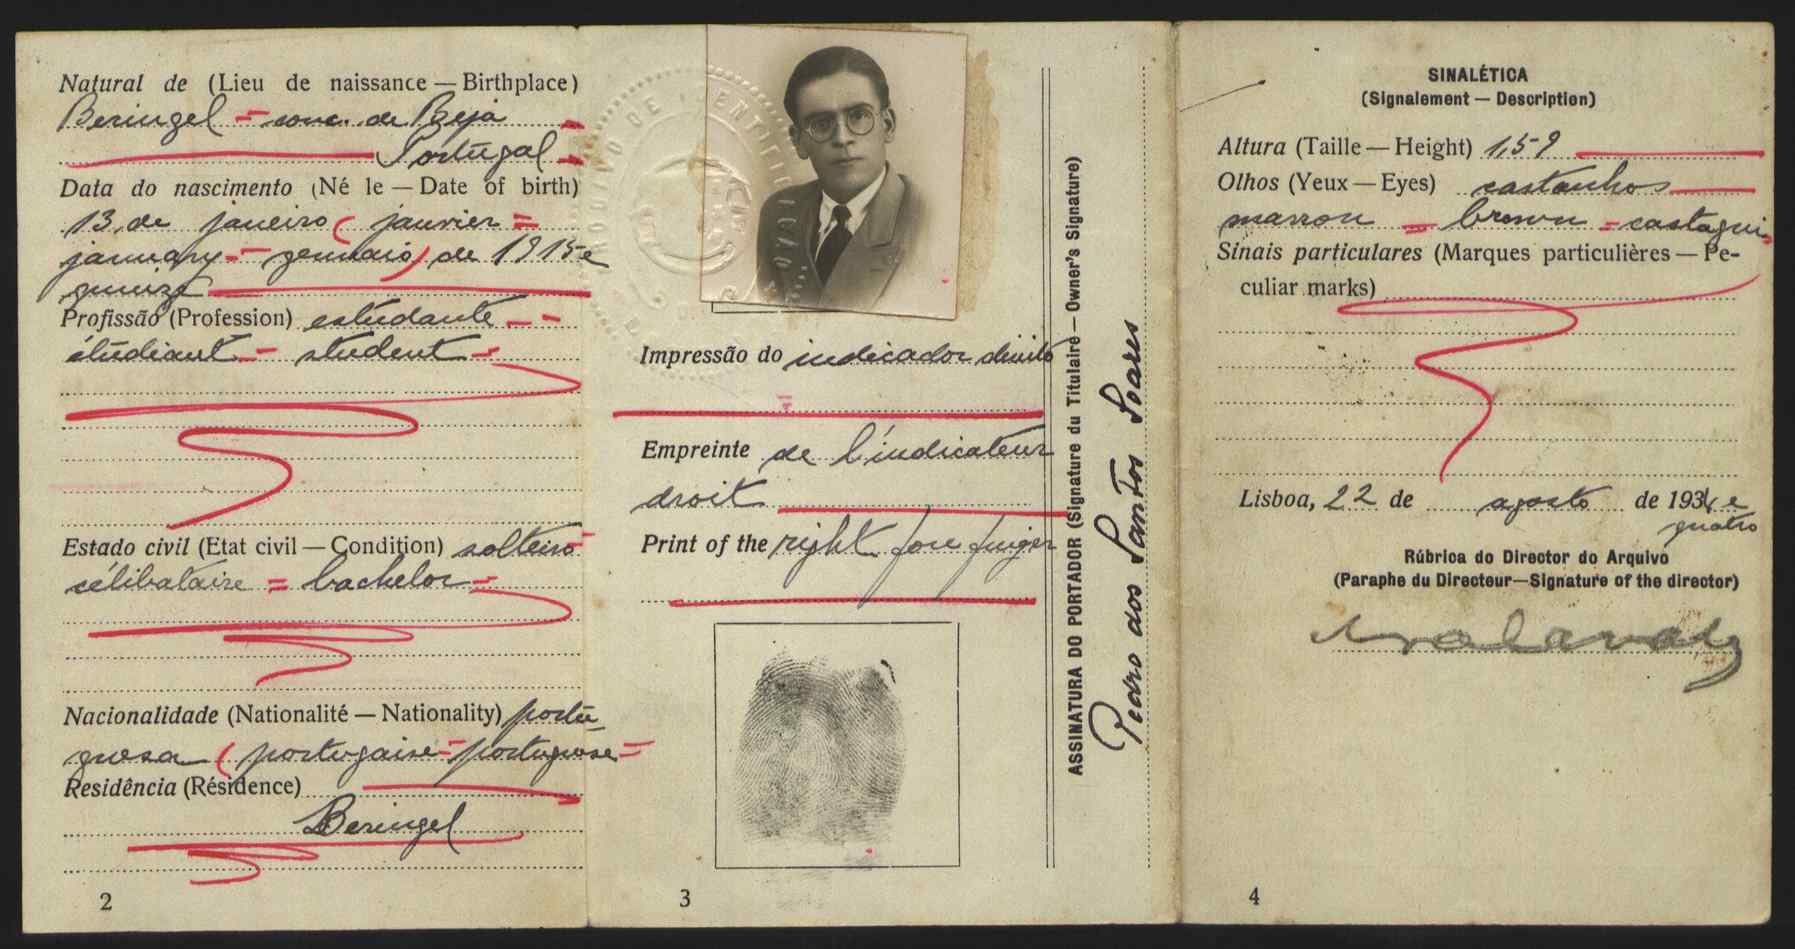 Natural de (Lieu de naissance — Birthplace)
Beringel = conc. de Beja
Portugal
Data do nascimento (Né le — Date of birth)
13, de janeiro ( janvier =
january = gennaio) de 1915 e
quinze
Profissão (Profession) estudante
étudiant - student
Estado civil (Etat civil — Condition) solteiro
célibataire = bachelor
Nacionalidade (Nationalité — Nationality) portu
guesa ( portugaise = portuguese =
Residência (Résidence)
Beringel
2
ARQUIVO DE IDENTIFICAÇÃO
Impressão do indicador direito
Empreinte de l'indicateur
droit
Print of the right fore finger
3
ASSINATURA DO PORTADOR (Signature du Titulaire — Owner's Signature)
Pedro dos Santos Soares
SINALÉTICA
(Signalement — Description)
Altura (Taille — Height) 1,59
Olhos (Yeux — Eyes) castanhos
marron = brown = castagni
Sinais particulares (Marques particulières — Pe-
culiar marks)
Lisboa, 22 de agosto de 1934 e
quatro
Rúbrica do Director do Arquivo
(Paraphe du Directeur—Signature of the director)
4